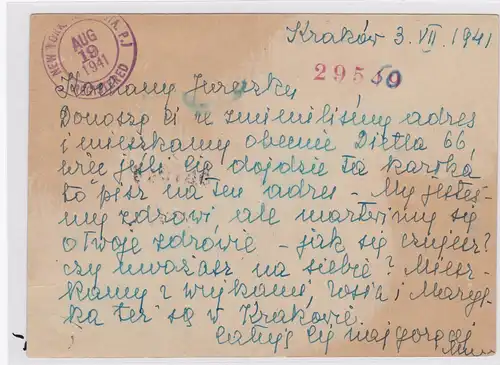 Kraków 3. VII. 1941
NEW YORK, N.Y. AUG 19 1941 REGISTERED
29540
Kochany Jureczku
Donoszę Ci że zmieniliśmy adres
i mieszkamy obecnie Dietla 66,
więc jeśli Cię dojdzie ta kartka
to pisz na ten adres - My jesteś-
my zdrowi, ale martwimy się
o twoje zdrowie - jak się czujesz?
czy uważasz na siebie? Miesz-
kamy z wujkami, i Maryś-
ka też są w Krakowie.
Całuję Cię najgoręcej